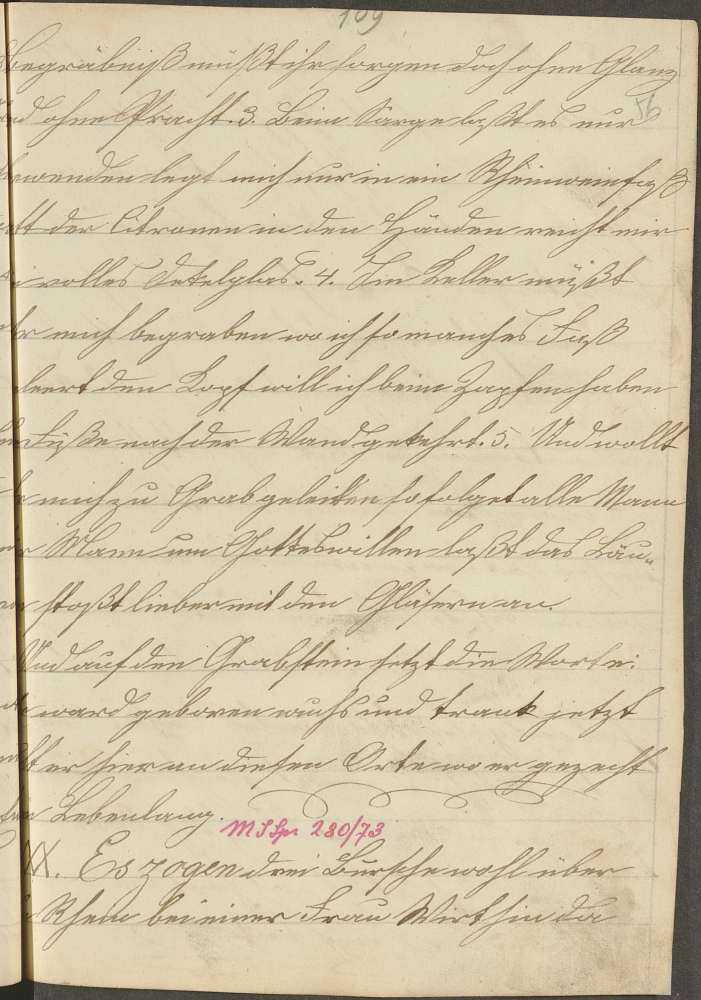 109
Begräbniß müßt ihr sorgen doch ohne Glanz
56
und ohne Pracht. 3. Beim Sarge laßt es nur
wenden legt mich nur in ein Rheinweinfaß
statt der Citronen in den Händen reicht mir
volles Deckelglas. 4. Im Keller müßt
ihr mich begraben wo ich so manches Faß
leert den Kopf will ich beim Zapfen haben
Füße nach der Wand gekehrt. 5. Und wollt
ihr mich zu Grab geleiten so folget alle Mann
für Mann um Gotteswillen laßt das Läu-
ten stoßt lieber mit den Gläsern an.
Und auf den Grabstein setzt die Worte:
ward geboren wuchs und trank jetzt
er hier an diesen Orte wo er gezecht
sein Lebenlang.
MSSpr 280/73
XX. Es zogen drei Bursche wohl über
Rhein bei einer Frau Wirthin da